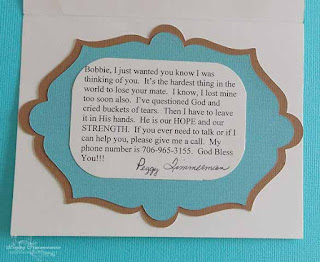 Bobbie, I just wanted you know I was
thinking of you.  It's the hardest thing in the
world to lose your mate.  I know, I lost mine
too soon also.  I've questioned God and
cried buckets of tears.  Then I have to leave
it in His hands.  He is our HOPE and our
STRENGTH.  If you ever need to talk or if I
can help you, please give me a call.  My
phone number is 706-965-3155.  God Bless
You!!!
Peggy Timmerman